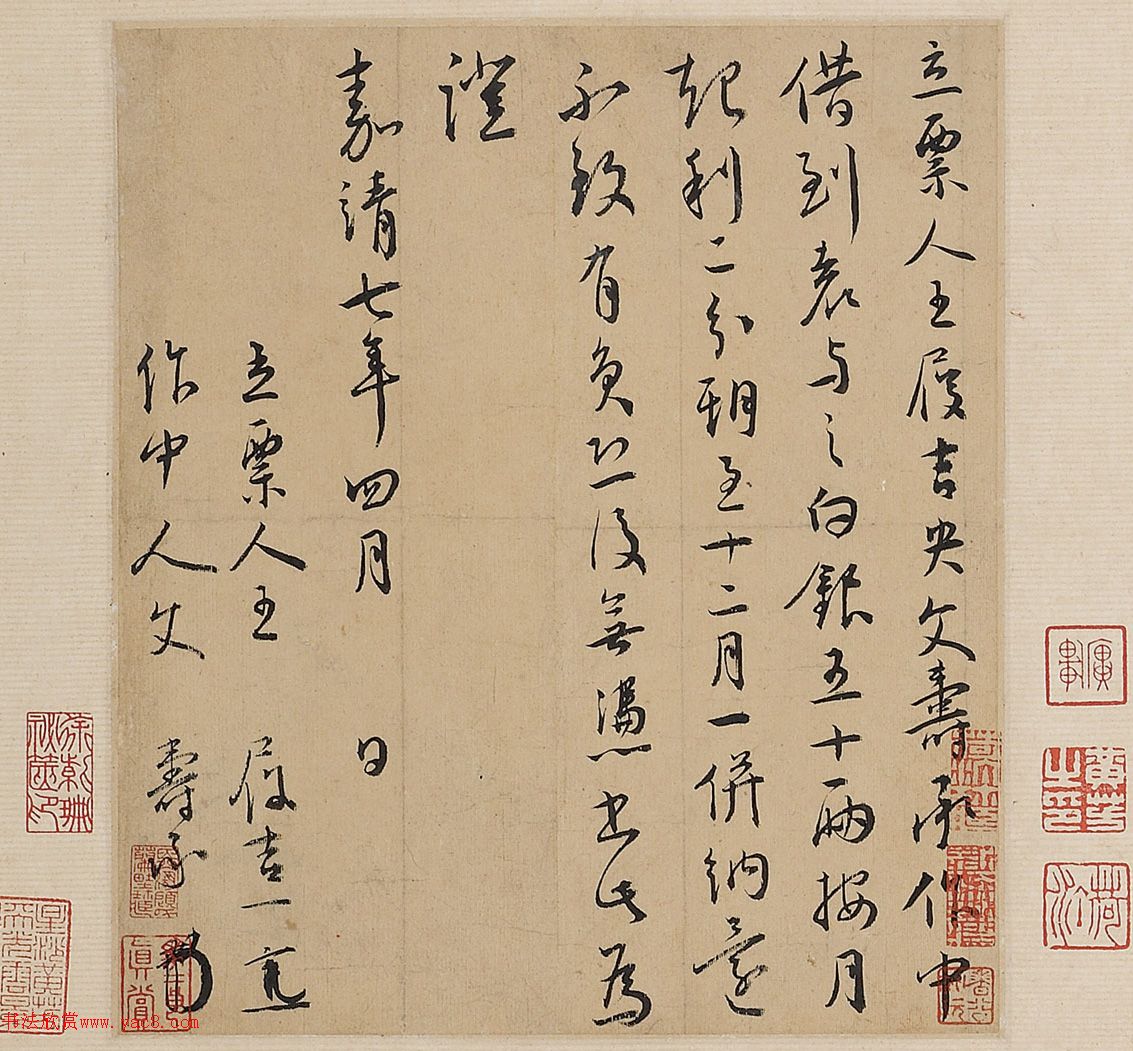 立票人王履吉央文壽承作中
借到袁与之白銀五十兩按月
起利二分期至十二月一併納還
不致有負恐後無憑書此為
證
嘉靖七年四月 日
立票人王 履吉
作中人文 壽承
真賞
書法欣赏www.yac8.com